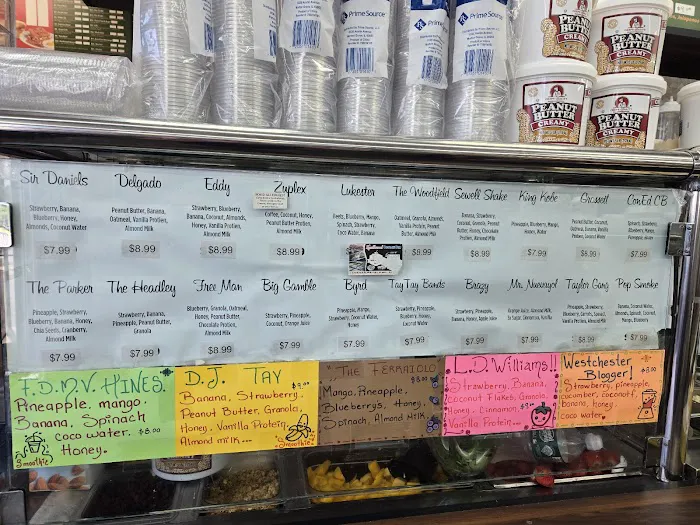 PrimeSource
PrimeSource
PEANUT
BUTTER
CREAMY
PEANUT
BUTTER
CREAMY
PEANUT
BUTTER
CREAMY
PEANUT
BUTTER
CREAMY
Sir Daniels
Strawberry, Banana,
Blueberry, Honey,
Almonds, Coconut Water
$7.99
Delgado
Peanut Butter, Banana,
Oatmeal, Vanilla Protien,
Almond Milk
$8.99
Eddy
Strawberry, Blueberry,
Banana, Coconut, Almonds,
Honey, Vanilla Protien,
Almond Milk
$8.99
Zuplex
Coffee, Coconut, Honey,
Peanut Butter Protien,
Almond Milk
$8.99
Lukester
Beets, Blueberry, Mango,
Spinach, Strawberry,
Coco Water, Almond
The Woodfield
Oatmeal, Granola, Almonds,
Vanilla Protein, Peanut
Butter, Almond Milk
$8.99
Sewell Shake
Strawberry, Banana,
Coconut, Granola, Peanut
Butter, Honey, Chocolate
Protien, Almond Milk
$8.99
King Kobe
Pineapple, Blueberry, Mango,
Honey, Water
$7.99
Grissell
Peanut Butter, Coconut,
Oatmeal, Banana, Vanilla
Protien, Coconut Water
$8.99
ConEd CB
Spinach, Strawberry,
Blueberry, Mango,
Pineapple, Water
$7.99
The Parker
Pineapple, Strawberry,
Blueberry, Banana, Honey,
Chia Seeds, Cranberry,
Almond Milk
$7.99
The Headley
Strawberry, Banana,
Pineapple, Peanut Butter,
Granola
$7.99
Free Man
Blueberry, Granola, Oatmeal,
Honey, Peanut Butter,
Chocolate Protien,
Almond Milk
$8.99
Big Gamble
Strawberry, Pineapple,
Coconut, Orange Juice
$7.99
Byrd
Pineapple, Mango,
Strawberry, Coconut Water,
Honey
$7.99
Tay Tay Bands
Strawberry, Pineapple,
Blueberry, Banana,
Coconut Water
$7.99
Brazy
Strawberry, Pineapple,
Banana, Honey, Apple Juice
$7.99
Mr. Nuevayol
Pineapple, Orange Juice, Milk,
In Sugar, Cinnamon, Vanilla
$7.99
Taylor Gang
Pineapple, Strawberry,
Blueberry, Carrots, Spinach,
Vanilla Protien, Almond Milk
$8.99
Pop Smoke
Banana, Coconut Water,
Almonds, Spinach, Coconut,
Mango, Blueberry
$7.99
F.D.M.V. HINES.
Pineapple, mango,
Banana, Spinach
coco water. $8.00
Honey.
Smoothie
D.J. TAY
$9.00
Banana, Strawberry,
Peanut Butter, Granola,
Honey, Vanilla Protein,
Almond milk...
Smoothie
"THE FERRAIOLO
$8.00
Mango, Pineapple,
Blueberrys, Honey,
Spinach, Almond Milk
L.D. Williams!!
Strawberry, Banana,
Coconut Flakes, Granola,
Honey, Cinnamon $9.00
Vanilla Protein...
Westchester
Blogger!
$8.00
Strawberry, pineapple,
cucumber, coconut,
Banana, honey,
coco water.